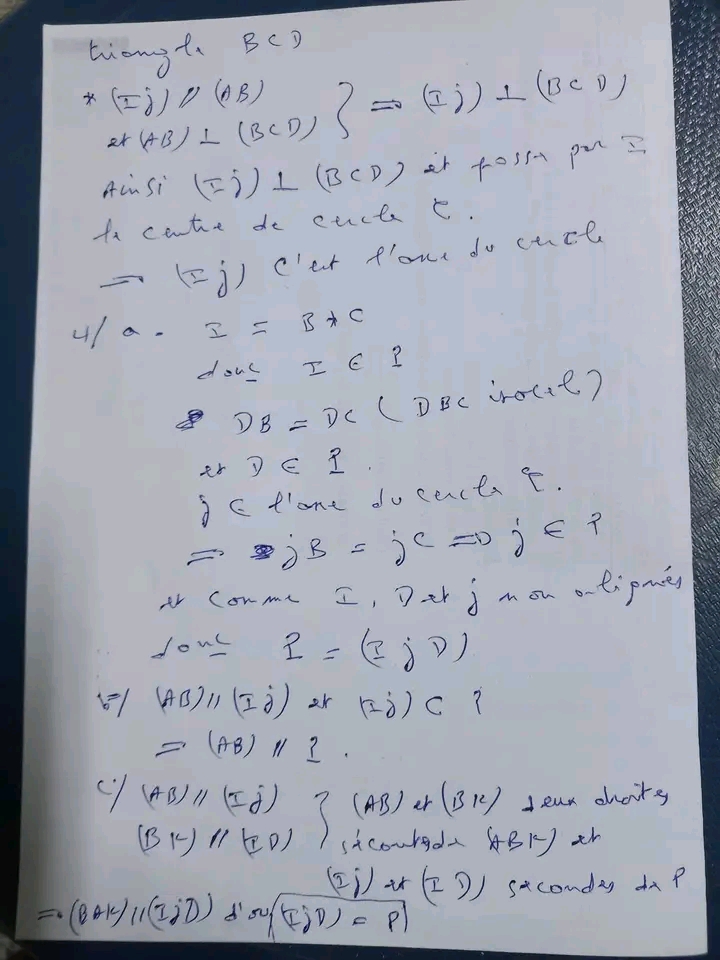 triangle BCD
* (Ij) // (AB)
et (AB) ⊥ (BCD) } => (Ij) ⊥ (BCD)
Ainsi (Ij) ⊥ (BCD) et passe par I
le centre de cercle ζ.
=> (Ij) c'est l'axe du cercle
4/ a - I = B * C
donc I ∈ P
DB = DC ( DBC isocel)
et D ∈ P.
j ∈ l'axe du cercle ζ.
=> jB = jC => j ∈ P
et comme I, D et j non alignés
donc P = (IjD)
b/ (AB) // (Ij) et (Ij) ⊂ P
= (AB) // P.
c/ (AB) // (Ij) } (AB) et (BK) deux droites
(BK) // (ID) } sécantes de (ABK) et
(Ij) et (ID) secondes de P
=> (BAK) // (IjD) d'où (IjD) = P